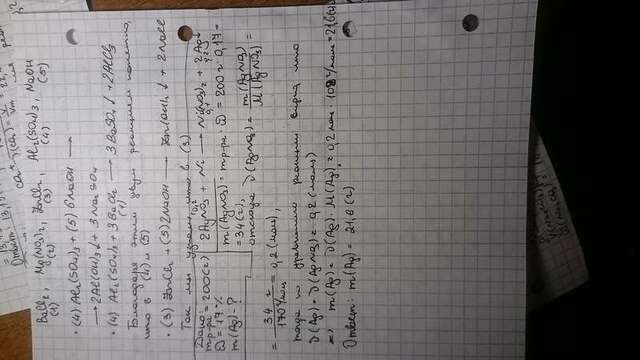 BaCl2, Mg(NO3)2, ZnCl2, Al2(SO4)3, NaOH
(1) (2) (3) (4) (5)
• (4) Al2(SO4)3 + (5) 6NaOH →
→ 2Al(OH)3↓ + 3Na2SO4
• (4) Al2(SO4)3 + 3BaCl2 → 3BaSO4↓ + 2AlCl3
(1)
Благодаря этим двум реакциям понятно,
что в (4) и (5)
• (3) ZnCl2 + (5) 2NaOH → Zn(OH)2↓ + 2NaCl
Так мы узнаем, что в (3)
Дано:
mр-ра = 200(г)
ω = 17%
m(Ag) - ?
2AgNO3 + Ni → Ni(NO3)2 + 2Ag↓
m(AgNO3) = mр-ра · ω = 200г · 0,17 =
= 34(г), отсюда ν(AgNO3) = m(AgNO3) / M(AgNO3) =
= 34 г / 170 г/моль = 0,2 (моль),
тогда по уравнению реакции видно, что
ν(Ag) = ν(AgNO3) = 0,2 (моль)
=> m(Ag) = ν(Ag) · M(Ag) = 0,2 моль · 108 г/моль = 21,6(г)
Ответ: m(Ag) = 21,6(г)